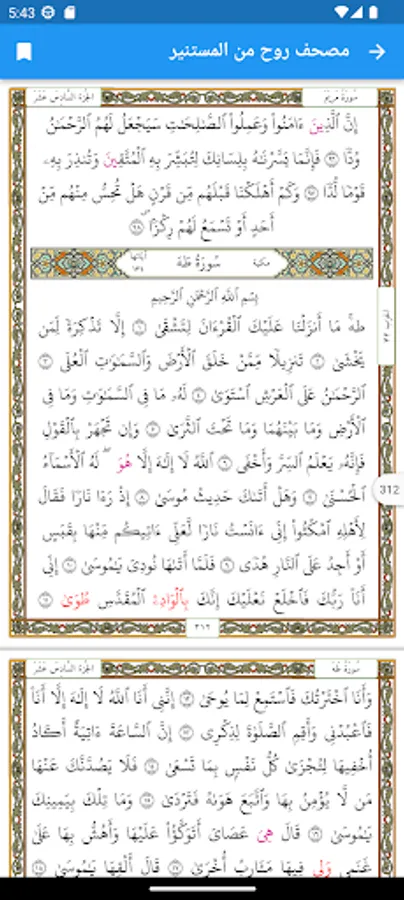 5:43
مصحف روح من المستنير
سورة مريم
الجزء السادس عشر
إِنَّ الَّذِينَ ءَامَنُوا وَعَمِلُوا الصَّٰلِحَٰتِ سَيَجْعَلُ لَهُمُ الرَّحْمَٰنُ
وُدًّا ٩٦ فَإِنَّمَا يَسَّرْنَٰهُ بِلِسَانِكَ لِتُبَشِّرَ بِهِ الْمُتَّقِينَ وَتُنذِرَ بِهِۦ
قَوْمًا لُّدًّا ٩٧ وَكَمْ أَهْلَكْنَا قَبْلَهُم مِّن قَرْنٍ هَلْ تُحِسُّ مِنْهُم مِّنْ
أَحَدٍ أَوْ تَسْمَعُ لَهُمْ رِكْزًا ٩٨
مكية
سورة طه
آياتها
بِسْمِ اللَّهِ الرَّحْمَٰنِ الرَّحِيمِ
طه مَا أَنزَلْنَا عَلَيْكَ الْقُرْءَانَ لِتَشْقَىٰ ١ إِلَّا تَذْكِرَةً لِّمَن
يَخْشَىٰ ٢ تَنزِيلًا مِّمَّنْ خَلَقَ الْأَرْضَ وَالسَّمَٰوَٰتِ الْعُلَى ٣
الرَّحْمَٰنُ عَلَى الْعَرْشِ اسْتَوَىٰ ٤ لَهُۥ مَا فِي السَّمَٰوَٰتِ وَمَا فِي
الْأَرْضِ وَمَا بَيْنَهُمَا وَمَا تَحْتَ الثَّرَىٰ ٥ وَإِن تَجْهَرْ بِالْقَوْلِ
فَإِنَّهُۥ يَعْلَمُ السِّرَّ وَأَخْفَى ٦ اللَّهُ لَا إِلَٰهَ إِلَّا هُوَ لَهُ الْأَسْمَاءُ
الْحُسْنَىٰ ٧ وَهَلْ أَتَىٰكَ حَدِيثُ مُوسَىٰ ٨ إِذْ رَءَا نَارًا فَقَالَ
لِأَهْلِهِ امْكُثُوا إِنِّي ءَانَسْتُ نَارًا لَّعَلِّي ءَاتِيكُم مِّنْهَا بِقَبَسٍ
أَوْ أَجِدُ عَلَى النَّارِ هُدًى ٩ فَلَمَّا أَتَىٰهَا نُودِيَ يَٰمُوسَىٰ ١٠ إِنِّي
أَنَا رَبُّكَ فَاخْلَعْ نَعْلَيْكَ إِنَّكَ بِالْوَادِ الْمُقَدَّسِ طُوًى ١١
312
٣١٢
سورة طه
الجزء السادس عشر
وَأَنَا اخْتَرْتُكَ فَاسْتَمِعْ لِمَا يُوحَىٰ ١٢ إِنَّنِي أَنَا اللَّهُ لَا إِلَٰهَ إِلَّا أَنَا
فَاعْبُدْنِي وَأَقِمِ الصَّلَوٰةَ لِذِكْرِي ١٣ إِنَّ السَّاعَةَ ءَاتِيَةٌ أَكَادُ
أُخْفِيهَا لِتُجْزَىٰ كُلُّ نَفْسٍ بِمَا تَسْعَىٰ ١٤ فَلَا يَصُدَّنَّكَ عَنْهَا
مَن لَّا يُؤْمِنُ بِهَا وَاتَّبَعَ هَوَىٰهُ فَتَرْدَىٰ ١٥ وَمَا تِلْكَ بِيَمِينِكَ
يَٰمُوسَىٰ ١٦ قَالَ هِيَ عَصَايَ أَتَوَكَّؤُا عَلَيْهَا وَأَهُشُّ بِهَا عَلَىٰ
غَنَمِي وَلِيَ فِيهَا مَـَٔارِبُ أُخْرَىٰ ١٧ قَالَ أَلْقِهَا يَٰمُوسَىٰ ١٨